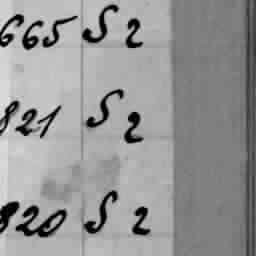 665 S 2
821 S 2
820 S 2